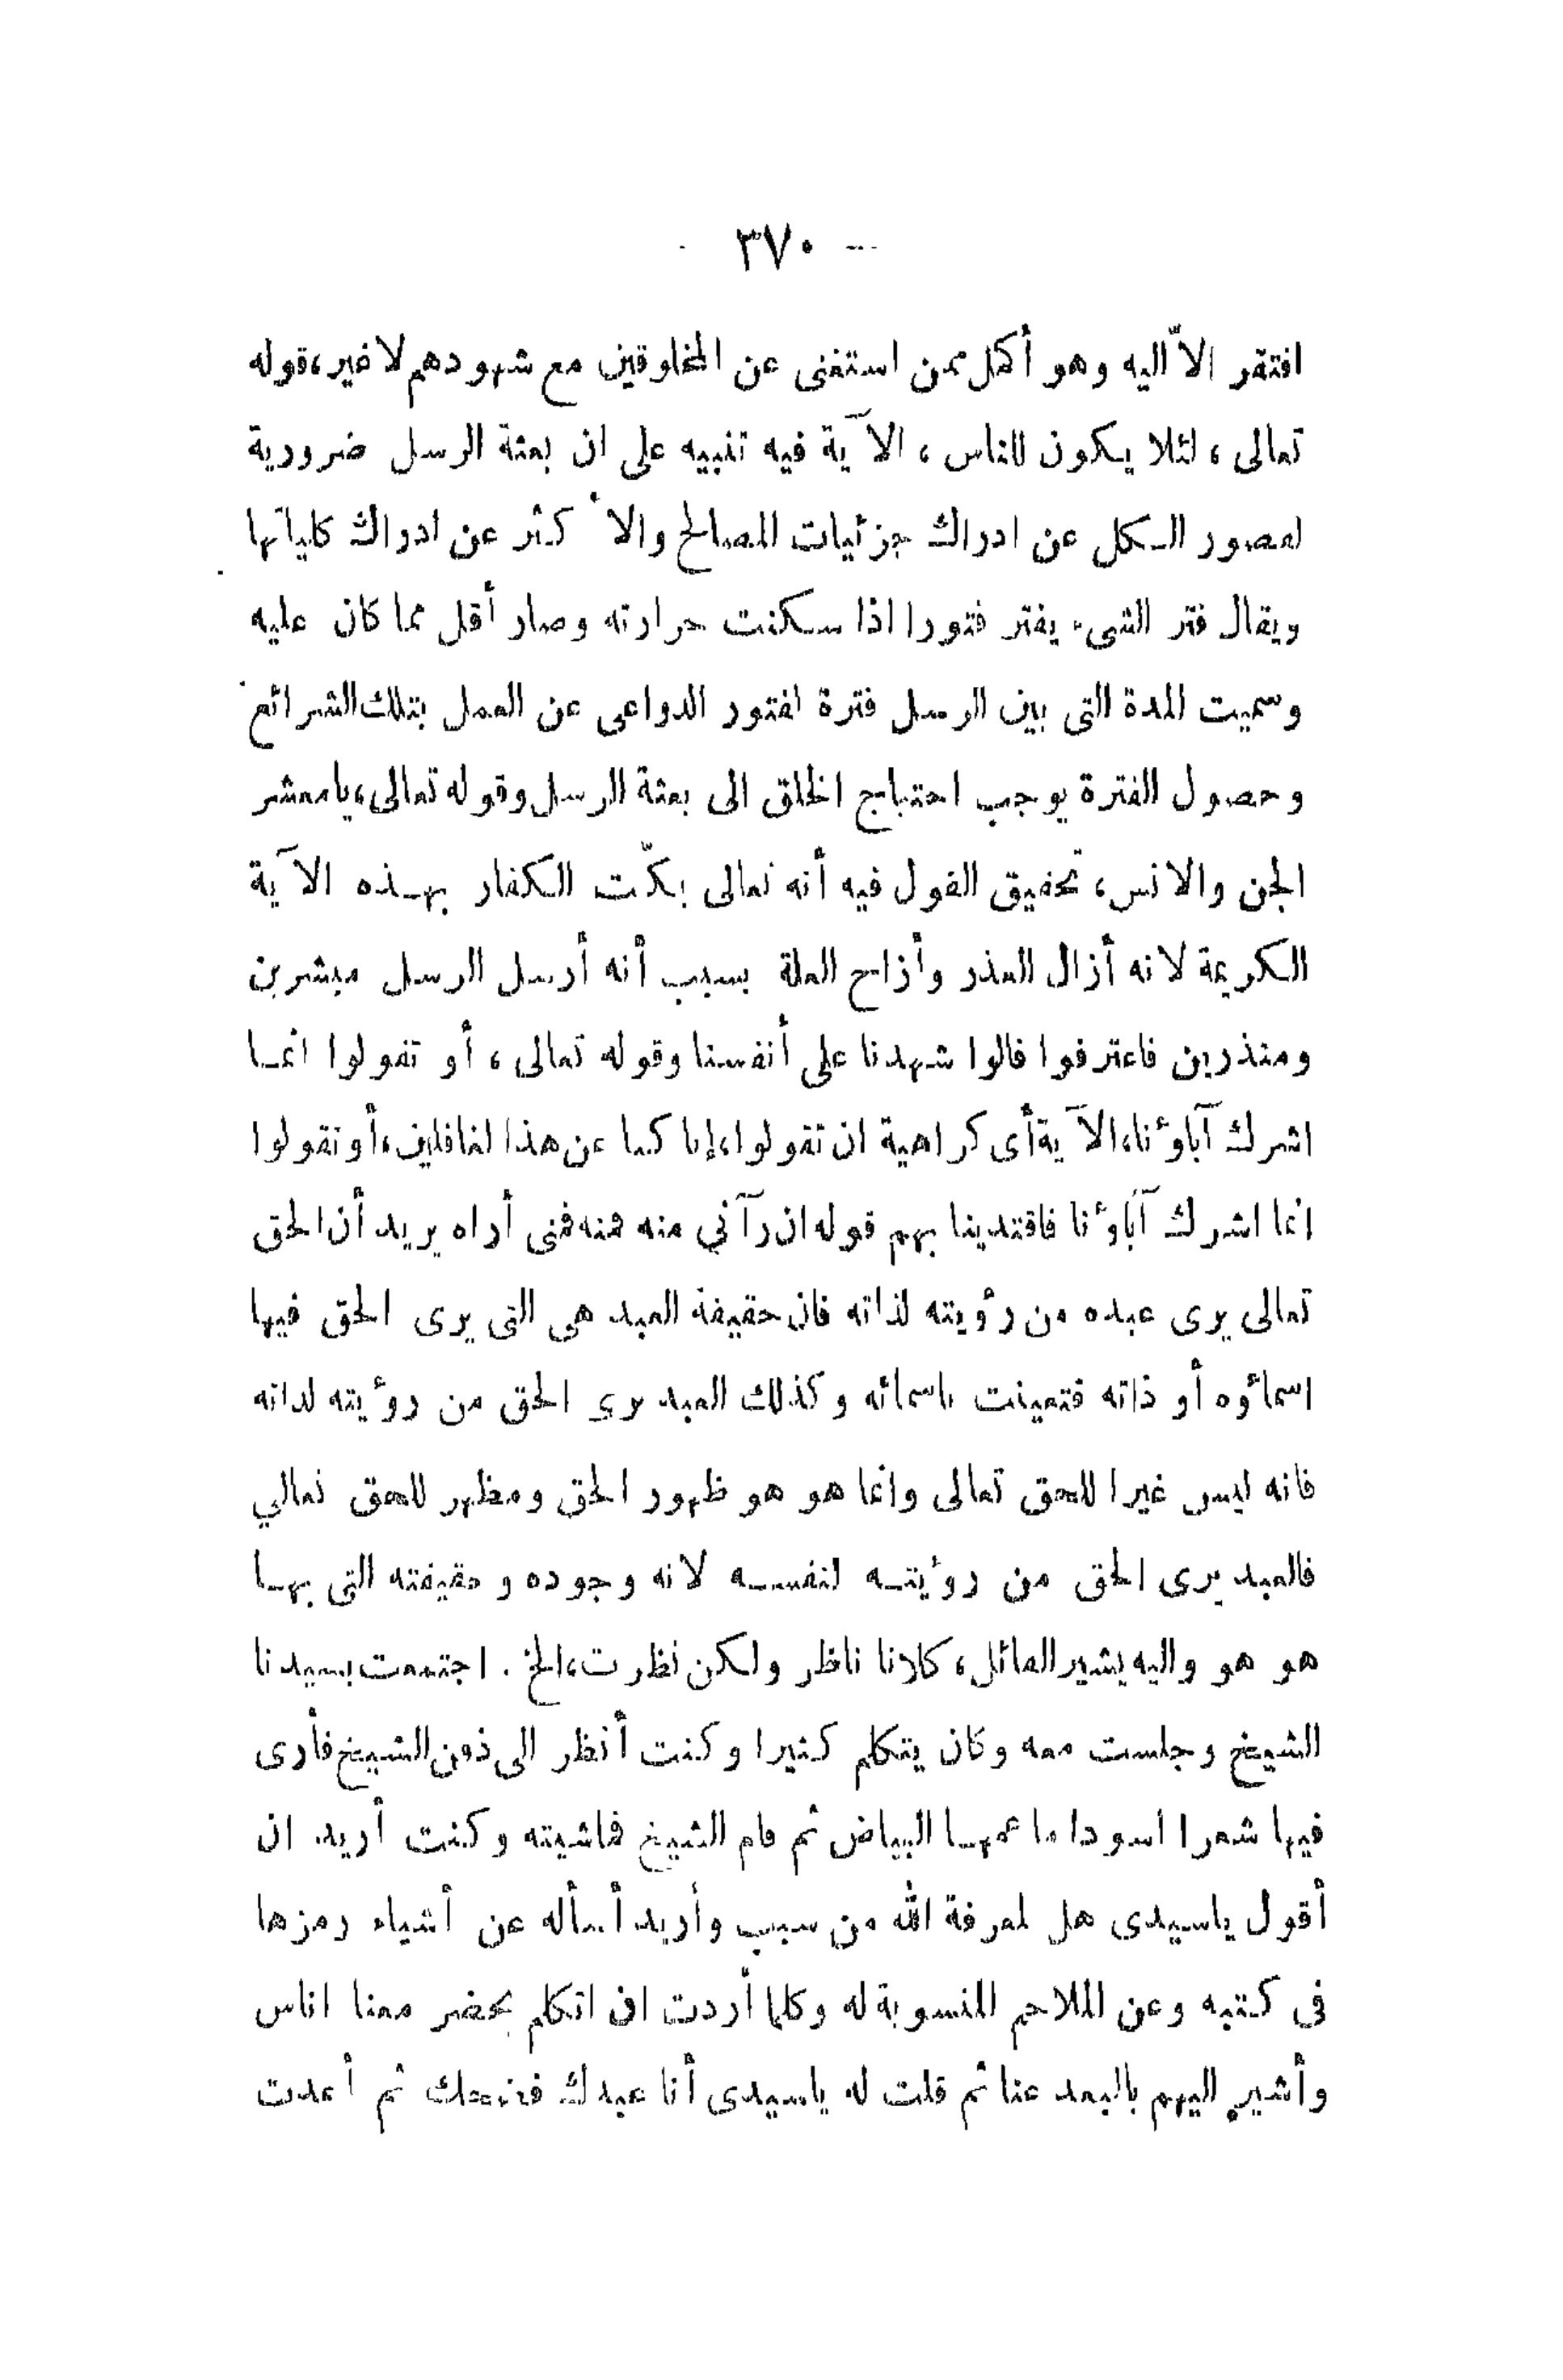 — ٣٧٠ —
افتقر الاّ اليه وهو أكمل ممن استغنى عن المخلوقين مع شهودهم لا غير، قوله
تعالى ، لئلا يكون للناس ، الآية فيه تنبيه على ان بعثة الرسل ضرورية
لقصور الكل عن ادراك جزئيات المصالح والأكثر عن ادراك كلياتها
ويقال فتر الشىء يفتر فتورا اذا سكنت حرارته وصار أقل مما كان عليه
وسميت المدة التى بين الرسل فترة لفتور الدواعى عن العمل بتلك الشرائع
وحصول الفترة يوجب احتياج الخلق الى بعثة الرسل وقوله تعالى، يامعشر
الجن والانس ، تحقيق القول فيه أنه تعالى بكّت الكفار بهذه الآية
الكريمة لانه أزال العذر وأزاح العلة بسبب أنه أرسل الرسل مبشرين
ومنذرين فاعترفوا قالوا شهدنا على أنفسنا وقوله تعالى ، أو تقولوا انما
اشرك آباؤنا، الآية أى كراهية ان تقولوا، إنا كنا عن هذا لغافلين، أو تقولوا
انما اشرك آباؤنا فاقتدينا بهم قوله ان رآني منه فمنه فمنى أراه يريد أن الحق
تعالى يرى عبده من رؤيته لذاته فان حقيقة العبد هى التى يرى الحق فيها
اسمائوه أو ذاته فتعينت باسمائه وكذلك العبد يرى الحق من رؤيته لذاته
فانه ليس غيرا للحق تعالى وانما هو هو ظهور الحق ومظهر للحق تعالي
فالعبد يرى الحق من رؤيته لنفسه لانه وجوده وحقيقته التى بها
هو هو واليه يشير القائل ، كلانا ناظر ولكن نظرت، الخ . اجتمعت بسيدنا
الشيخ وجلست معه وكان يتكلم كثيرا وكنت أنظر الى ذقن الشيخ فأرى
فيها شعرا اسودا ما عمها البياض ثم قام الشيخ فماشيته وكنت أريد ان
أقول ياسيدى هل لمعرفة الله من سبب وأريد أسأله عن أشياء رمزها
فى كتبه وعن الملاحم المنسوبة له وكلما أردت ان اتكلم يحضر معنا اناس
وأشير اليهم بالبعد عنا ثم قلت له ياسيدى أنا عبدك فضحك ثم أعدت